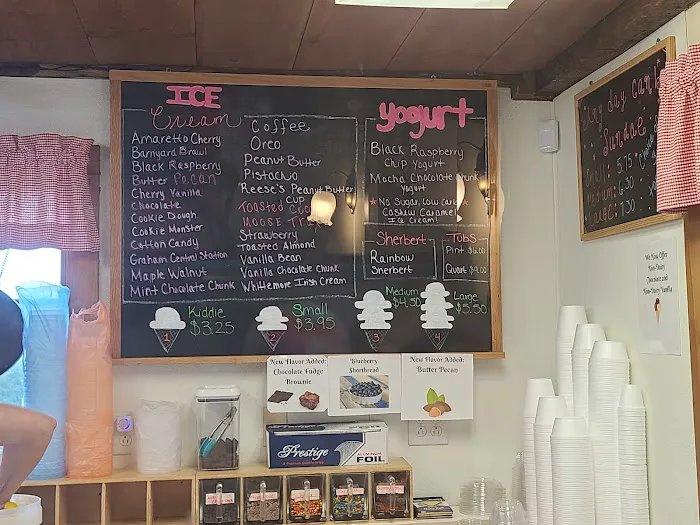 ICE
Cream
Amaretto Cherry
Barnyard Brawl
Black Raspberry
Butter Pecan
Cherry Vanilla
Chocolate
Cookie Dough
Cookie Monster
Cotton Candy
Graham Central Station
Maple Walnut
Mint Chocolate Chunk
Coffee
Oreo
Peanut Butter
Pistachio
Reese's Peanut Butter
CUP
Toasted
MOOSE
Strawberry
Toasted Almond
Vanilla Bean
Vanilla Chocolate Chunk
Whittemore Irish Cream
Yogurt
Black Raspberry
Chip Yogurt
Mocha Chocolate Chunk
Yogurt
* No Sugar, Low Carb *
Cashew Caramel
Ice Cream!
Sherbert
Rainbow
Sherbert
Tubs
Pint $6.00
Quart $9.00
1
Kiddie
$3.25
2
Small
$3.95
3
Medium
$4.50
4
Large
$5.50
New Flavor Added:
Chocolate Fudge
Brownie
Blueberry
Shortbread
New Flavor Added:
Butter Pecan
Prestige
ALUMINUM
FOIL
Any day can b
Sundae
5.75
Medium: 6.50
Large: 7.50
We Now Offer
Non-Dairy
Chocolate and
Non-Dairy Vanilla